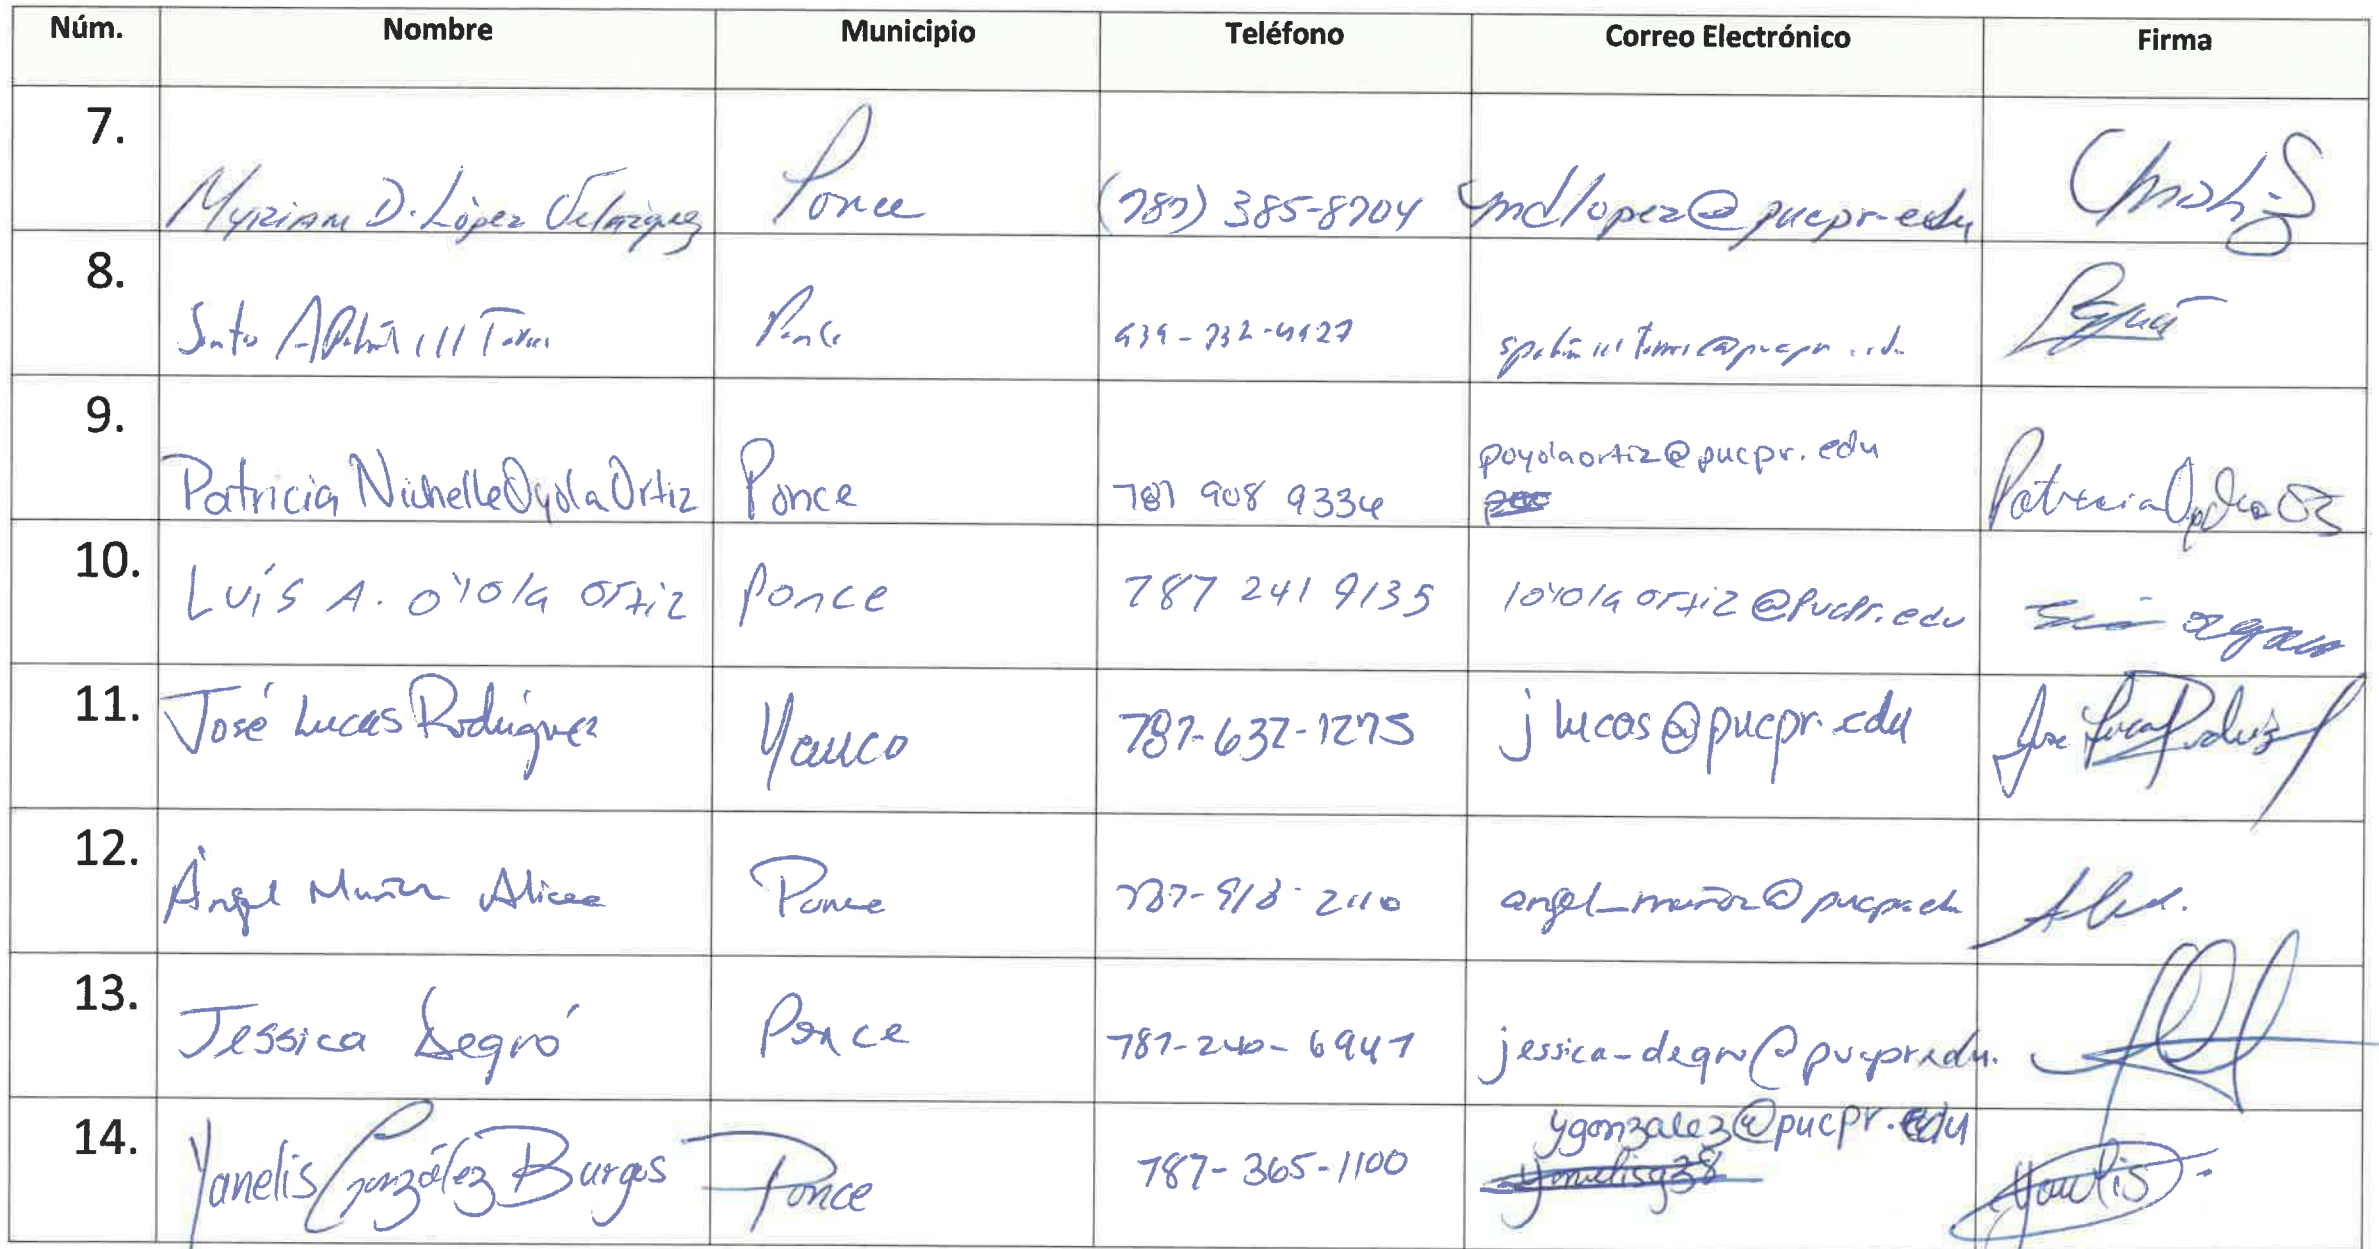 Núm. Nombre Municipio Teléfono Correo Electrónico Firma
7. Myriam D. López Velázquez Ponce (787) 385-8704 ymdlopez@pucpr.edu
8. Ponce
9. Patricia Nichelle Oyola Ortiz Ponce 787 908 9334 poyolaortiz@pucpr.edu
10. Luís A. oyola ortiz ponce 787 241 9135 loyolaortiz@pucpr.edu
11. José Lucas Rodríguez Yauco 787-632-1275 jlucas@pucpr.edu Jose Lucas Rodriguez
12. Ángel Muñoz Alicea Ponce angel_muñoz@pucpr.edu
13. Jessica Degró Ponce 787-240-6947 jessica-degro@pucpr.edu.
14. Yanelis González Burgos Ponce 787-365-1100 ygonzalez@pucpr.edu Yanelis